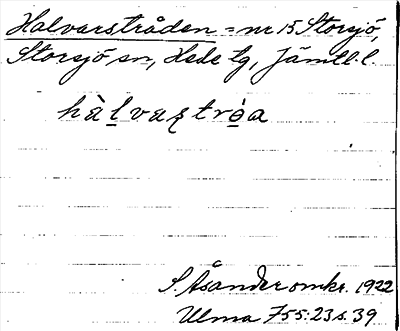 Halvarstråden = nr 15 Storsjö,
Storsjö sn, Hede tg, Jämtl. l.
hàl̲vaʂtrό̲a
S. Åsander omkr. 1922
Ulma 755:23 s. 39